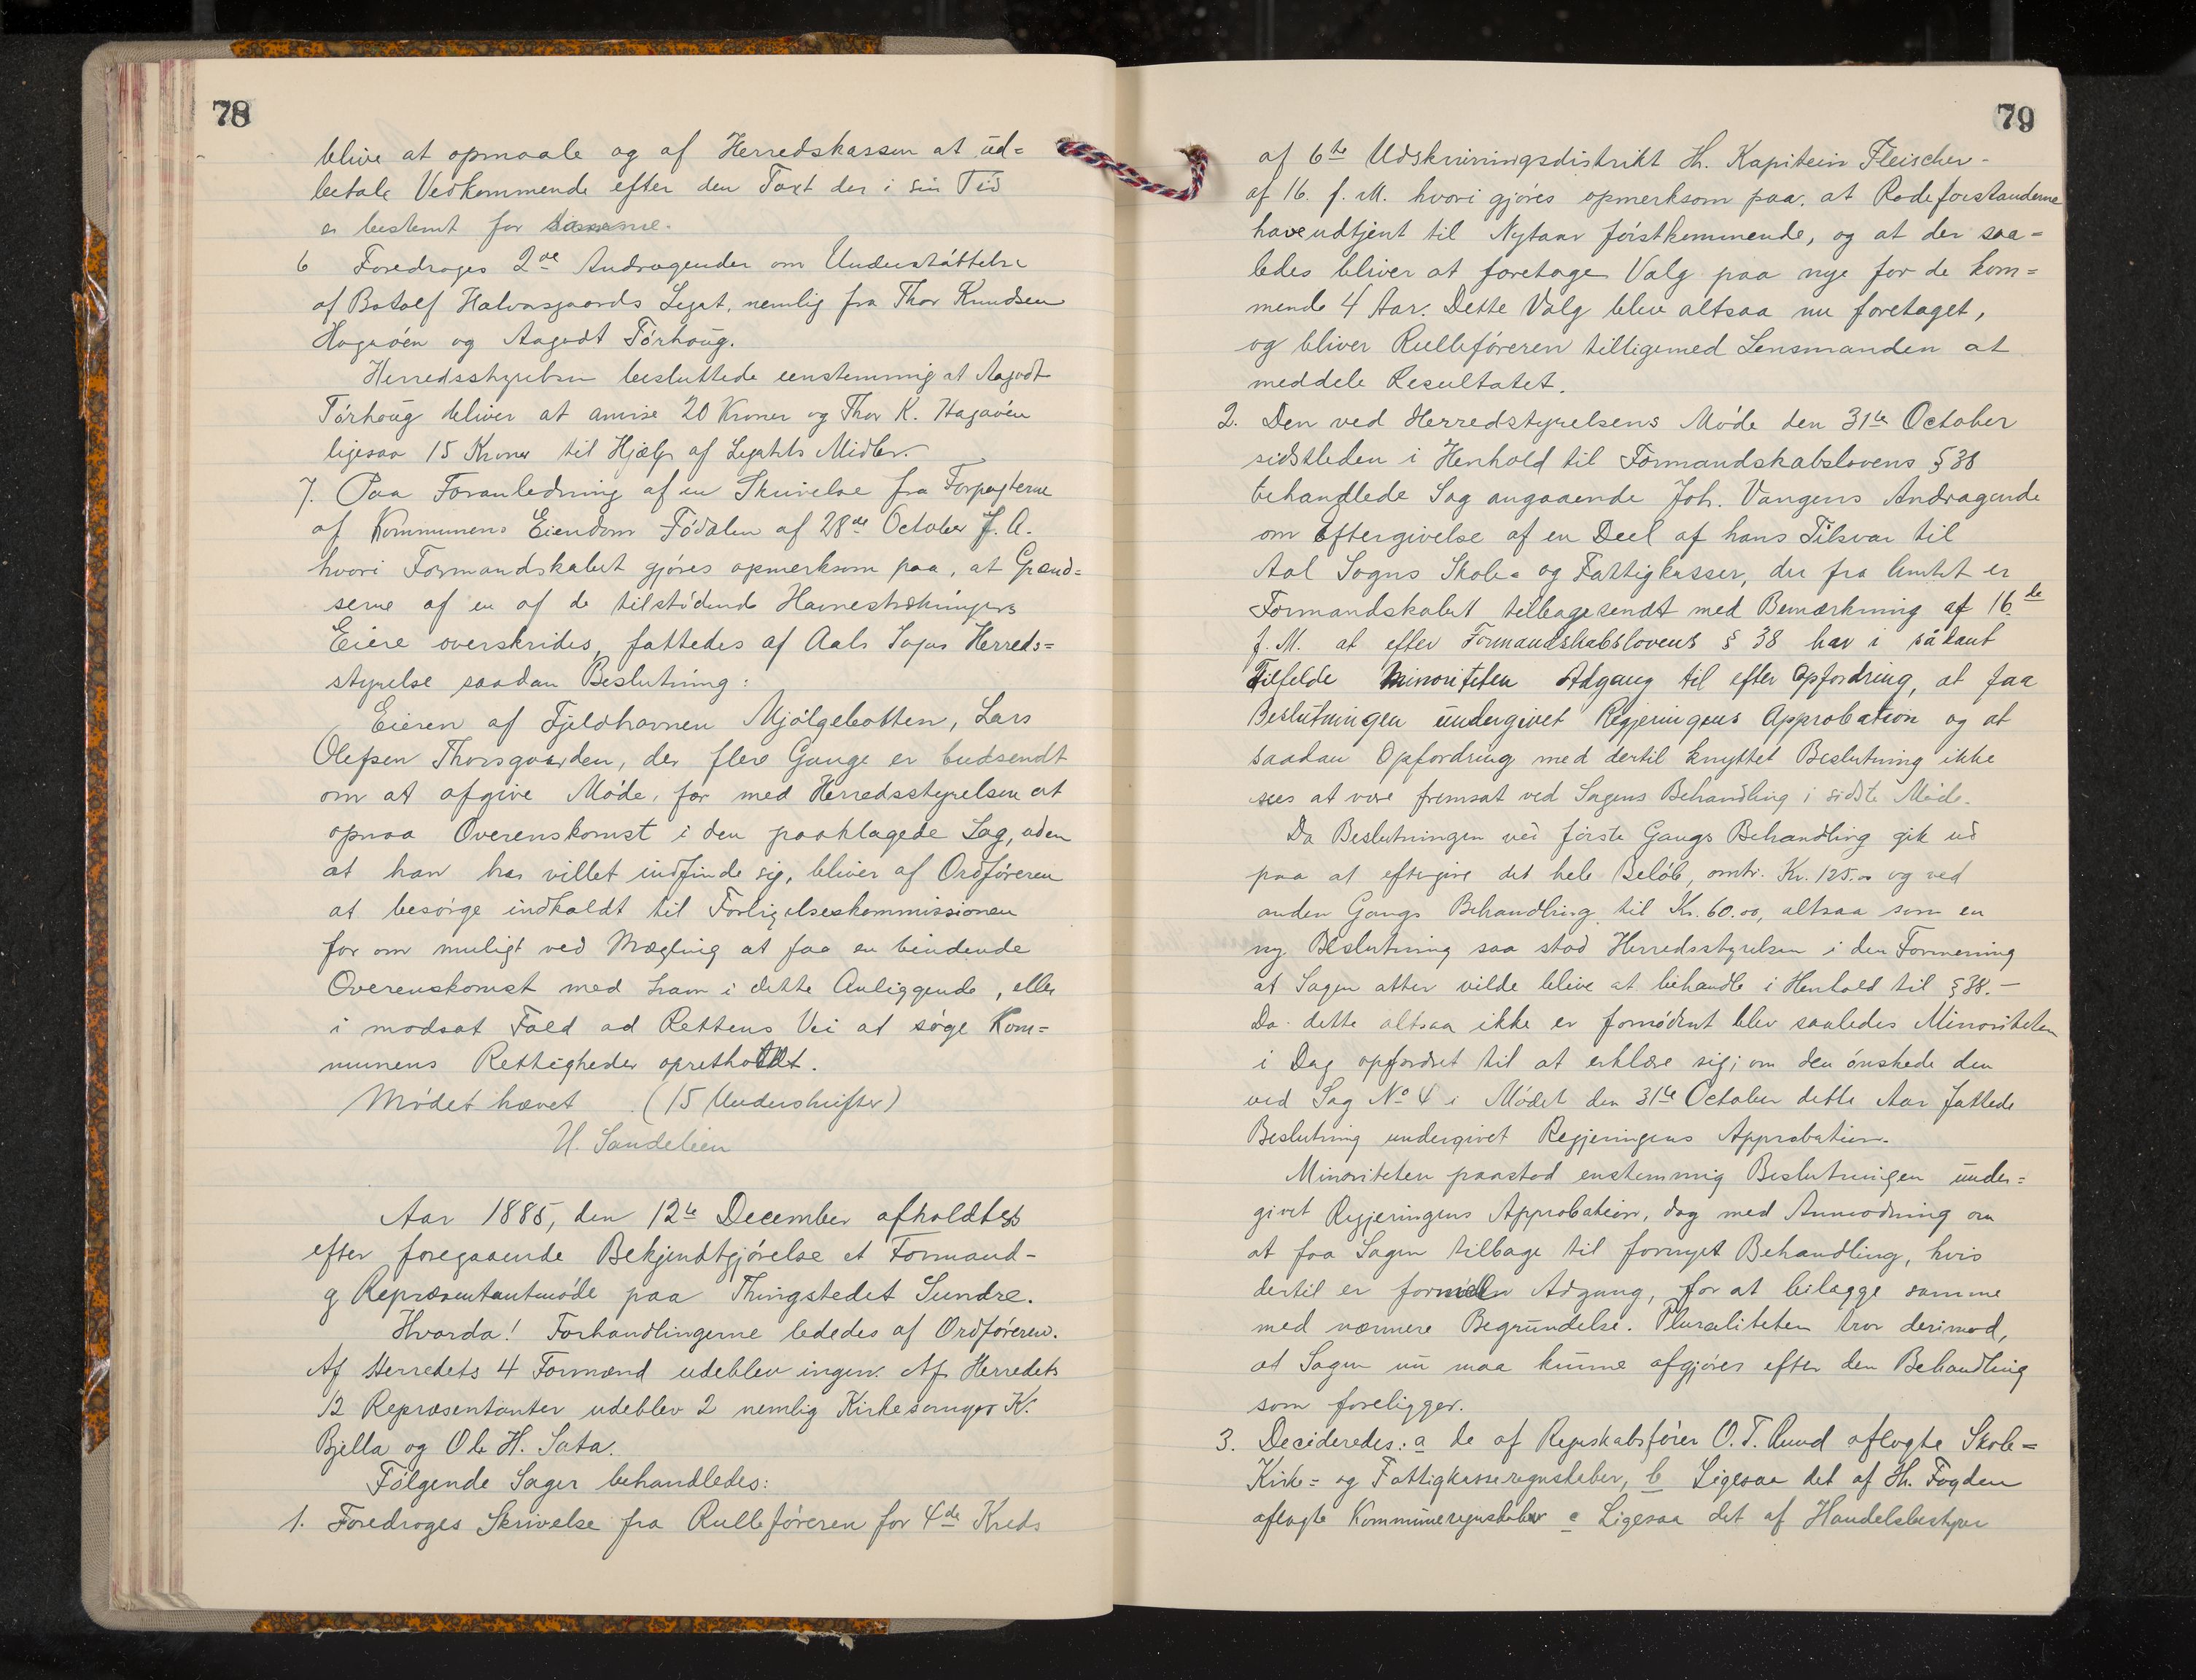 78
blive at opmaale og af Herredskassen at ud=
betale Vedkommende efter den Taxt der i sin Tid
er bestemt for samme.
6 Foredroges 2de Andragender om Understøttelse
af Botolf Halvorsgaards Legat, nemlig fra Thor Knudsen
Hagaøen og Aagodt Tørhoug.
Herredsstyrelsen besluttede eenstemmig at Aagodt
Tørhoug bliver at anvise 20 Kroner og Thor K. Hagaøen
ligesaa 15 Kroner til Hjælp af Legatets Midler.
7. Paa Foranledning af en Skrivelse fra Forpagterne
af Kommunens Eiendom Fødalen af 28de October f. A.
hvori Formandskabet gjøres opmerksom paa, at Grænd=
serne af en af de tilstødende Havnestrækningers
Eiere overskrides, fattedes af Aals Sogns Herreds=
styrelse saadan Beslutning:
Eieren af Fjeldhavnen Mjølgebotten, Lars
Olefsen Thorsgaarden, der flere Gange er budsendt
om at afgive Møde, for med Herredsstyrelsen at
opnaa Overenskomst i den paaklagede Sag, uden
at han har villet indfinde sig, bliver af Ordføreren
at besørge indkaldt til Forligelseskommissionen
for om muligt ved Mægling at faa en bindende
Overenskomst med ham i dette Anliggende, eller
i modsat Fald ad Rettens Vei at søge Kom=
munens Rettigheder opretholdt.
Mødet hævet (15 Underskrifter)
H. Sandelien
Aar 1885, den 12te December afholdtes
efter foregaaende Bekjendtgjørelse et Formand-
g Repræsentantmøde paa Thingstedet Sundre.
Hvorda! Forhandlingerne lededes af Ordføreren.
Af Herredets 4 Formænd udeblev ingen. Af Herredets
12 Repræsentanter udeblev 2 nemlig Kirkesanger K.
Bjella og Ole H. Sata.
Følgende Sager behandledes:
1. Foredroges Skrivelse fra Rulleføreren for 4de Kreds
79
af 6te Udskrivningsdistrikt Hr. Kapitein Fleischer-
af 16. f. M. hvori gjøres opmerksom paa, at Rodeforstanderne
have udtjent til Nytaar førstkommende, og at der saa=
ledes bliver at foretage Valg paa nye for de kom=
mende 4 Aar. Dette Valg blev altsaa nu foretaget,
og bliver Rulleføreren tilligemed Lensmanden at
meddele Resultatet.
2. Den ved Herredstyrelsens Møde den 31te October
sidstleden i Henhold til Formandskabslovens § 38
behandlede Sag angaaende Joh. Vangens Andragende
om Eftergivelse af en Deel af hans Tilsvar til
Aal Sogns Skole= og Fattigkasser, der fra Amtet er
Formandskabet tilbagesendt med Bemærkning af 16.de
f. M. at efter Formandskabslovens § 38 har i sådant
Tilfelde Minoriteten Adgang til efter Opfordring, at faa
Beslutningen undergivet Regjeringens Approbation og at
saadan Opfordring med dertil knyttet Beslutning ikke
sees at være fremsat ved Sagens Behandling i sidste Møde.
Da Beslutningen ved første Gangs Behandling gik ud
paa at eftergive det hele Beløb, omtr. Kr. 125.00 og ved
anden Gangs Behandling til Kr. 60.00, altsaa som en
ny Beslutning saa stod Herredsstyrelsen i den Formening
at Sagen atter vilde blive at behandle i Henhold til § 38.-
Da dette altsaa ikke er fornødent blev saaledes Minoriteten
i Dag opfordret til at erklære sig; om den ønskede den
ved Sag No 4 i Mødet den 31te October dette Aar fattede
Beslutning undergivet Regjeringens Approbation.
Minoriteten paastod enstemmig Beslutningen under=
givet Regjeringens Approbation, dog med Anmodning om
at faa Sagen tilbage til fornyet Behandling, hvis
dertil er formellen Adgang, for at bilægge samme
med nærmere Begrundelse. Pluraliteten tror derimod,
at Sagen nu maa kunne afgjøres efter den Behandling
som foreligger.
3. Decideredes: a de af Regnskabsfører O. T. Ruud aflagte Skole=
Kirke= og Fattigkasseregnskaber, b Ligesaa det af Hr. Fogden
aflagte Kommuneregnskaber c Ligesaa det af Handelsbestyrer